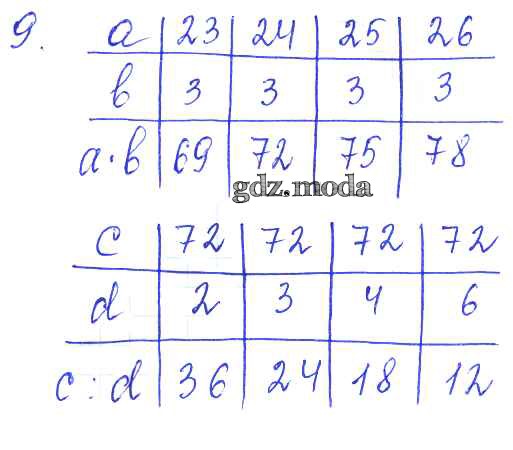 9. a 23 24 25 26
b 3 3 3 3
a·b 69 72 75 78
gdz.moda
c 72 72 72 72
d 2 3 4 6
c:d 36 24 18 12